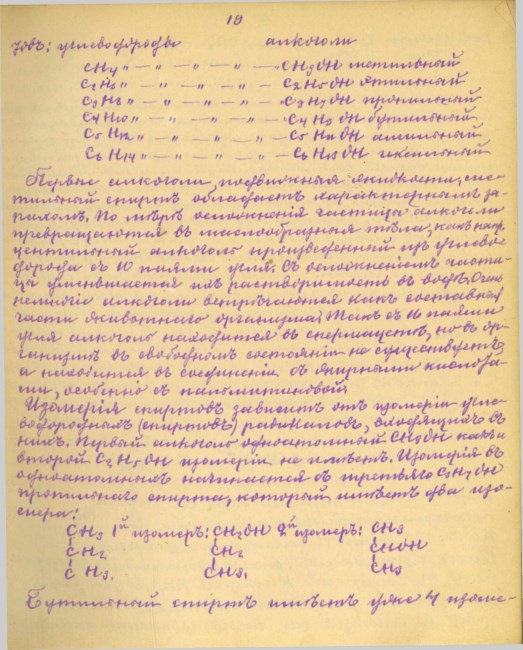 19
зовъ: углеводороды алкоголи
CH4 " — " — " — " — CH3OH метильный
C2H6 " — " — " — " — C2H5OH этильный
C3H8 " — " — " — " — C3H7OH пропильный
C4H10 " — " — " — " — C4H9OH бутильный
C5H12 " — " — " — " — C5H11OH амильный
C6H14 " — " — " — " — C6H13OH гексильный
Первые алкоголи, подвижныя жидкости, ме-
тильный спиртъ обладаетъ характернымъ за-
пахомъ. По мѣрѣ осложненія частицы алкоголи
превращаются въ маслообразныя тѣла, какъ напр.
алкоголь произведенный изъ углево-
дорода съ 10 паями угля. Съ осложненіемъ части-
цы уменьшается ихъ растворимость въ водѣ. Очень
немногіе алкоголи встрѣчаются какъ составная
часть животнаго организма. Такъ съ 16 паями
угля алкоголь находится въ спермацетѣ, но въ ор-
ганизмѣ въ свободномъ состояніи не существуетъ,
а находится въ соединеніи съ жирными кислота-
ми, особенно съ пальмитиновой.
Изомерія спиртовъ зависитъ отъ изомеріи угле-
водородныхъ (спиртовъ) радикаловъ, входящихъ въ
нихъ. Первый алкоголь одноатомный CH3OH какъ и
второй C2H5OH изомеріи не имѣетъ. Изомерія въ
одноатомныхъ начинается съ третьяго C3H7OH
пропильнаго спирта, который имѣетъ два изо-
мера:
CH3 1й изомеръ: CH2OH 2й изомеръ: CH3
CH2 CH2 CHOH
CH3 CH3 CH3
Бутильный спиртъ имѣетъ уже 4 изоме-